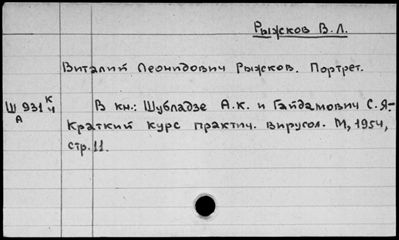 Рыжков В.Л.
Виталий Леонидович Рыжков. Портрет.
Ш 931 К/4
А
В кн.: Шубладзе А.К. и Гайдамович С.Я-
Краткий курс практич. вирусол. М, 1954,
стр. 11.